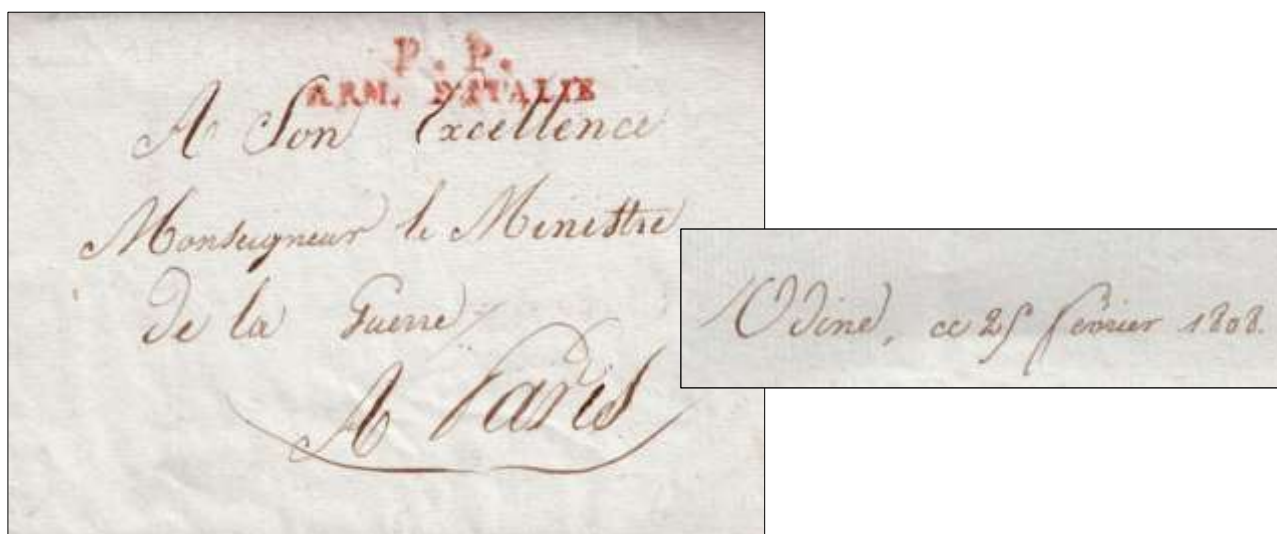 P. P.
ARM. D'ITALIE
A Son Excellence
Monseigneur le Ministre
De la Guerre
A Paris
Udine, ce 25 février 1808.